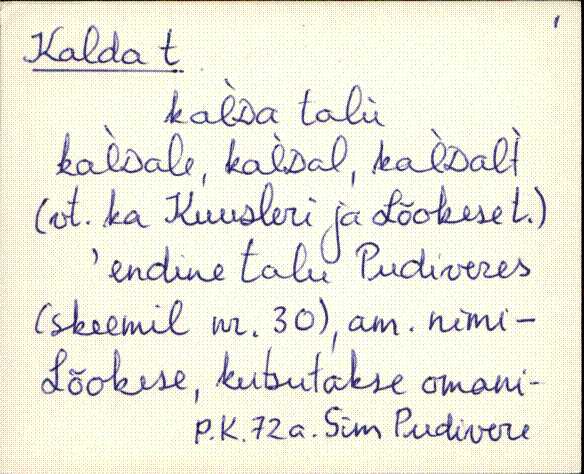 Kalda t
kal̀da talu
kal̀dale, kal̀dal, kal̀dalt
(vt. ka Kuusleri ja Lõokese t.)
'endine talu Pudiveres
(skeemil nr. 30), am. nimi-
Lõokese, kutsutakse omani-
P.K. 72 a. Sim Pudivere